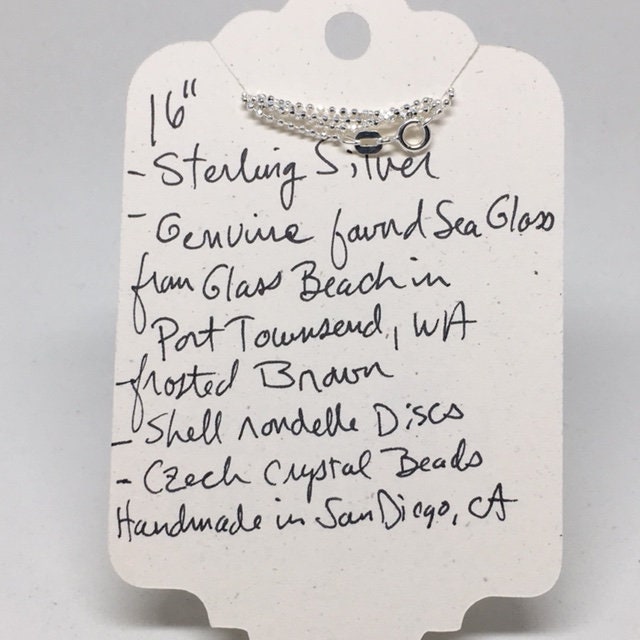 16"
- Sterling Silver
- Genuine found Sea Glass
from Glass Beach in
Port Townsend, WA
-frosted Brown
- Shell rondelle Discs
- Czech Crystal Beads
Handmade in San Diego, CA